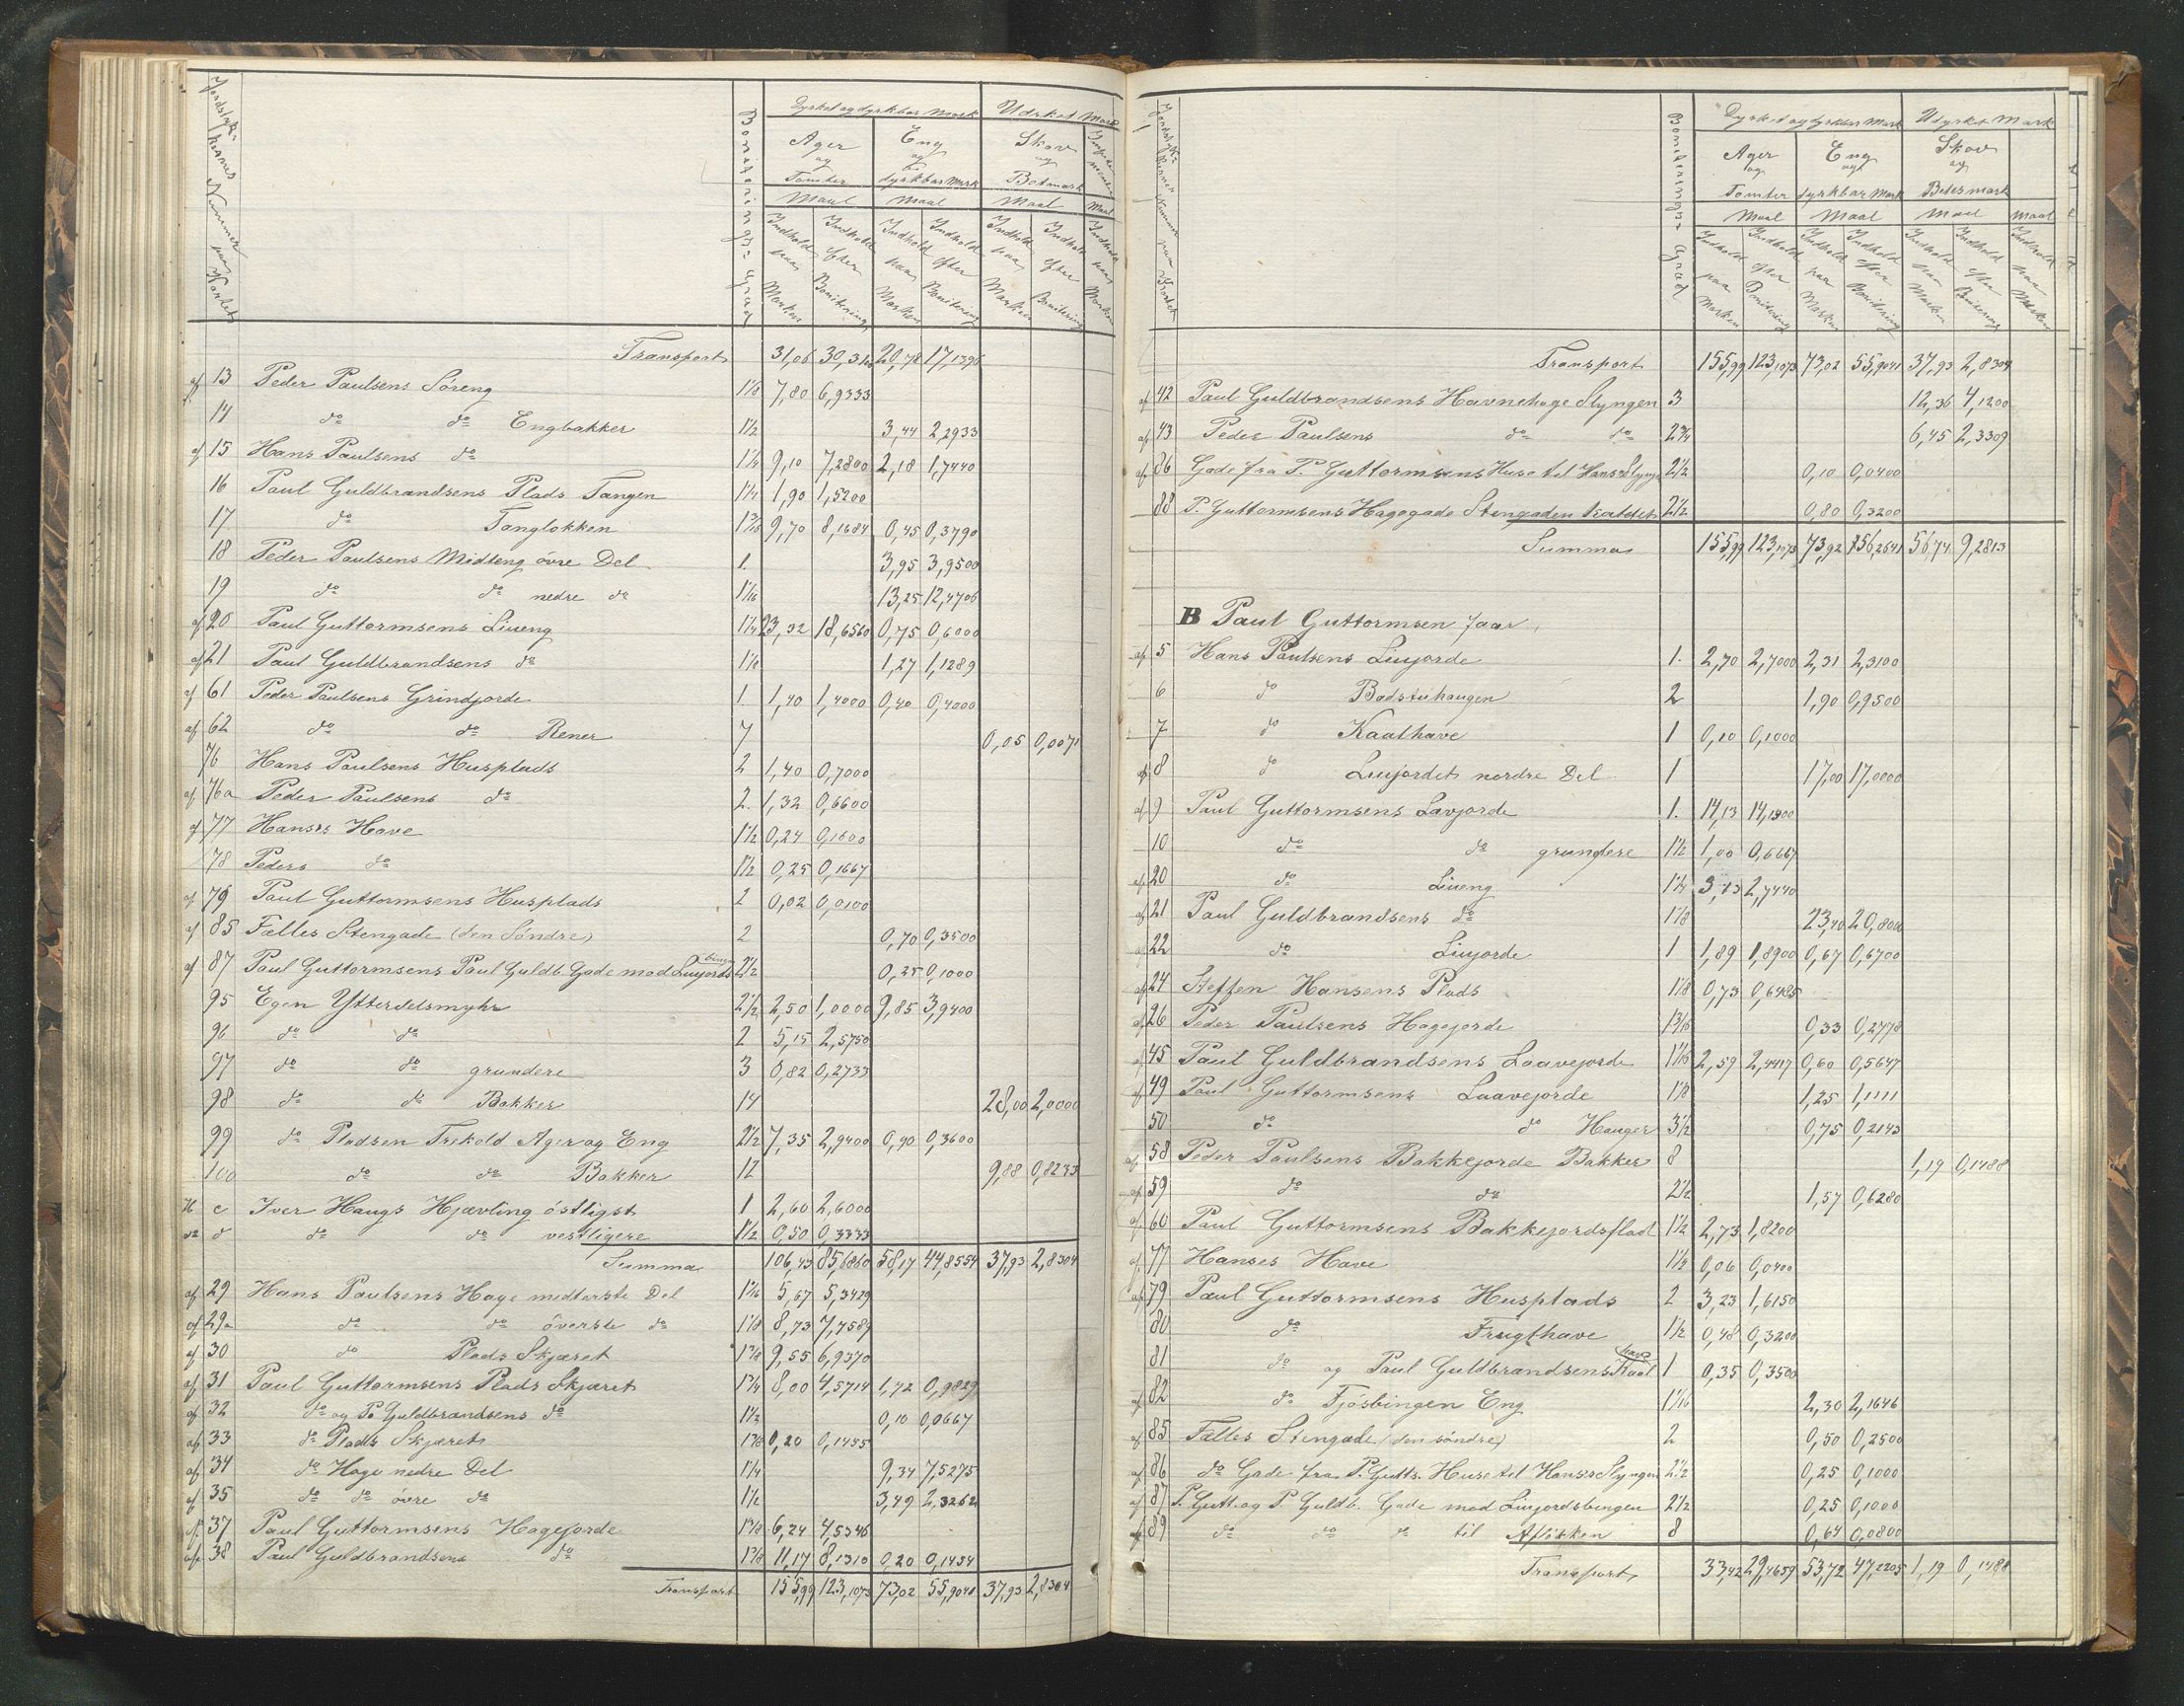 Jordstykkernes Nummer paa Kartet
Boniterings Grad
Dyrket og dyrkbar Mark Udyrket Mark
Ager og Tomter Eng og dyrkbar Mark Skov og Betmark
Maal Maal Maal Maal
Indhold paa Marken Indhold efter Bonitering Indhold paa Marken Indhold efter Bonitering Indhold paa Marken Indhold efter Bonitering Indhold paa Marken
Transport 31,06 20,78 17,1396
af 13 Peder Paulsens Söreng 1 1/8 7,80 6,9333
14 do do Engbakker 1 1/2 3,44 2,2933
af 15 Hans Paulsens do 1 1/4 9,10 7,2800 2,18 1,7440
16 Paul Guldbrandsens Plads Tangen 1 1/4 1,90 1,5200
17 do Tangløkken 1 3/16 9,70 8,1684 0,45 0,3790
18 Peder Paulsens Midteng övre Del 1. 3,95 3,9500
19 do do nedre do 1 1/16 13,25 12,4706
af 20 Paul Guttormsens Liueng 1 1/4 23,32 18,6560 0,75 0,6000
af 21 Paul Guldbrandsens do 1 1/8 1,27 1,1289
af 61 Peder Paulsens Grindjorde 1. 1,40 1,4000 0,40 0,4000
af 62 do do Rener 7 0,05 0,0071
76 Hans Paulsens Husplads 2 1,40 0,7000
af 76a Peder Paulsens do 2. 1,32 0,6600
af 77 Hanses Have 1 1/2 0,24 0,1600
78 Peders do 1 1/2 0,25 0,1667
af 79 Paul Guttormsens Husplads 2 0,02 0,0100
af 85 Fælles Stengade (den Söndre) 2 0,70 0,3500
af 87 Paul Guttormsens Paul Guldb. Gade mod Liujords bingen 2 1/2 0,25 0,1000
95 Egen Ytterdelsmyhr 2 1/2 2,50 1,0000 9,85 3,9400
96 do do 2 5,15 2,5750
97 do do grundere 3 0,82 0,2733
98 do do Bakker 14 28,00 2,0000
99 do Pladsen Trekold Ager og Eng 2 1/2 7,35 2,9400 0,90 0,3600
100 do do Bakker 12 9,88 0,8233
H c Iver Haugs Hjævling östligst 1 2,60 2,6000
do d do do vestligere 1 1/2 0,50 0,3333
Summa 106,43 85,6860 58,17 44,8554 37,93 2,8304
af 29 Hans Paulsens Hage midterste Del 1 1/16 5,67 5,3429
af 29a do do överste do 1 1/8 8,73 7,7589
af 30 do Plads Skjæret 1 3/8 9,55 6,9370
af 31 Paul Guttormsens Plads Skjæret 1 3/4 8,00 4,5714 1,72 0,9829
af 32 do og P. Guldbrandsens do 1 1/2 0,10 0,0667
af 33 do Plads Skjæret 1 3/8 0,20 0,1455
af 34 do Hage nedre Del 1 1/4 9,34 7,5275
af 35 do do övre do 1 1/2 3,49 2,3262
af 37 Paul Guttormsens Hagejorde 1 3/8 6,24 4,5346
af 38 Paul Guldbrandsens do 1 3/8 11,17 8,1310 0,20 0,1454
Transport 155,99 123,1073 73,02 55,9041 37,93 2,8304
Jordstykkernes Nummer paa Kartet
Boniterings Grad
Dyrket og dyrkbar Mark Udyrket Mark
Ager og Tomter Eng og dyrkbar Mark Skov og Betesmark
Maal Maal Maal Maal
Indhold paa Marken Indhold efter Bonitering Indhold paa Marken Indhold efter Bonitering Indhold paa Marken Indhold efter Bonitering Indhold paa Marken
Transport 155,99 123,1073 73,02 55,9041 37,93 2,8304
af 42 Paul Guldbrandsens Havnehage Slyngen 3 12,36 4,1200
af 43 Peder Paulsens do do 2 3/4 6,45 2,3309
af 86 Gade fra P. Guttormsens Huse til Hanses Slyngen 2 1/2 0,10 0,0400
88 P. Guttormsens Hagegade Stengaden kaldet 2 1/2 0,80 0,3200
Summa 155,99 123,1073 73,92 56,2641 56,74 9,2813
B Paul Guttormsen faar,
af 5 Hans Paulsens Liujorde 1. 2,70 2,7000 2,31 2,3100
6 do Badstuhaugen 2 1,90 0,9500
7 do Kaalhave 1 0,10 0,1000
af 8 do Liujordets nordre Del 1 17,00 17,0000
af 9 Paul Guttormsens Lavjorde 1. 14,13 14,1300
10 do do grundere 1 1/2 1,00 0,6667
af 20 do Liueng 1 1/4 3,43 2,7440
af 21 Paul Guldbrandsens do 1 1/8 23,40 20,8000
af 22 do Liujorde 1 1,89 1,8900 0,67 0,6700
af 24 Steffen Hansens Plads 1 1/8 0,73 0,6485
af 26 Peder Paulsens Hagejorde 1 3/16 0,33 0,2778
af 45 Paul Guldbrandsens Laavejorde 1 1/16 2,59 2,4417 0,60 0,5647
af 49 Paul Guttormsens Laavejorde 1 1/8 1,25 1,1111
50 do do Hauger 3 1/2 0,75 0,2143
af 58 Peder Paulsens Bakkejorde Bakker 8 1,19 0,1488
af 59 do do 2 1/2 1,57 0,6280
af 60 Paul Guttormsens Bakkejordsflad 1 1/2 2,73 1,8200
af 77 Hanses Have 1 1/2 0,06 0,0400
af 79 Paul Guttormsens Husplads 2 3,23 1,6150
80 do Frugthave 1 1/2 0,48 0,3200
81 do og Paul Guldbrandsens Kaal have 1 0,35 0,3500
af 82 do Fjösbingen Eng 1 1/16 2,30 2,1646
af 85 Fælles Stengade (den söndre) 2 0,50 0,2500
af 86 do Gade fra P. Gutts. Huse til Hanses Slyngen 2 1/2 0,25 0,1000
af 87 P. Gutt. og P. Guldb. Gade mod Liujordsbingen 2 1/2 0,25 0,1000
af 89 do do do til Afløkken 8 0,64 0,0800
Transport 33,42 29,4659 53,72 47,2205 1,19 0,1488